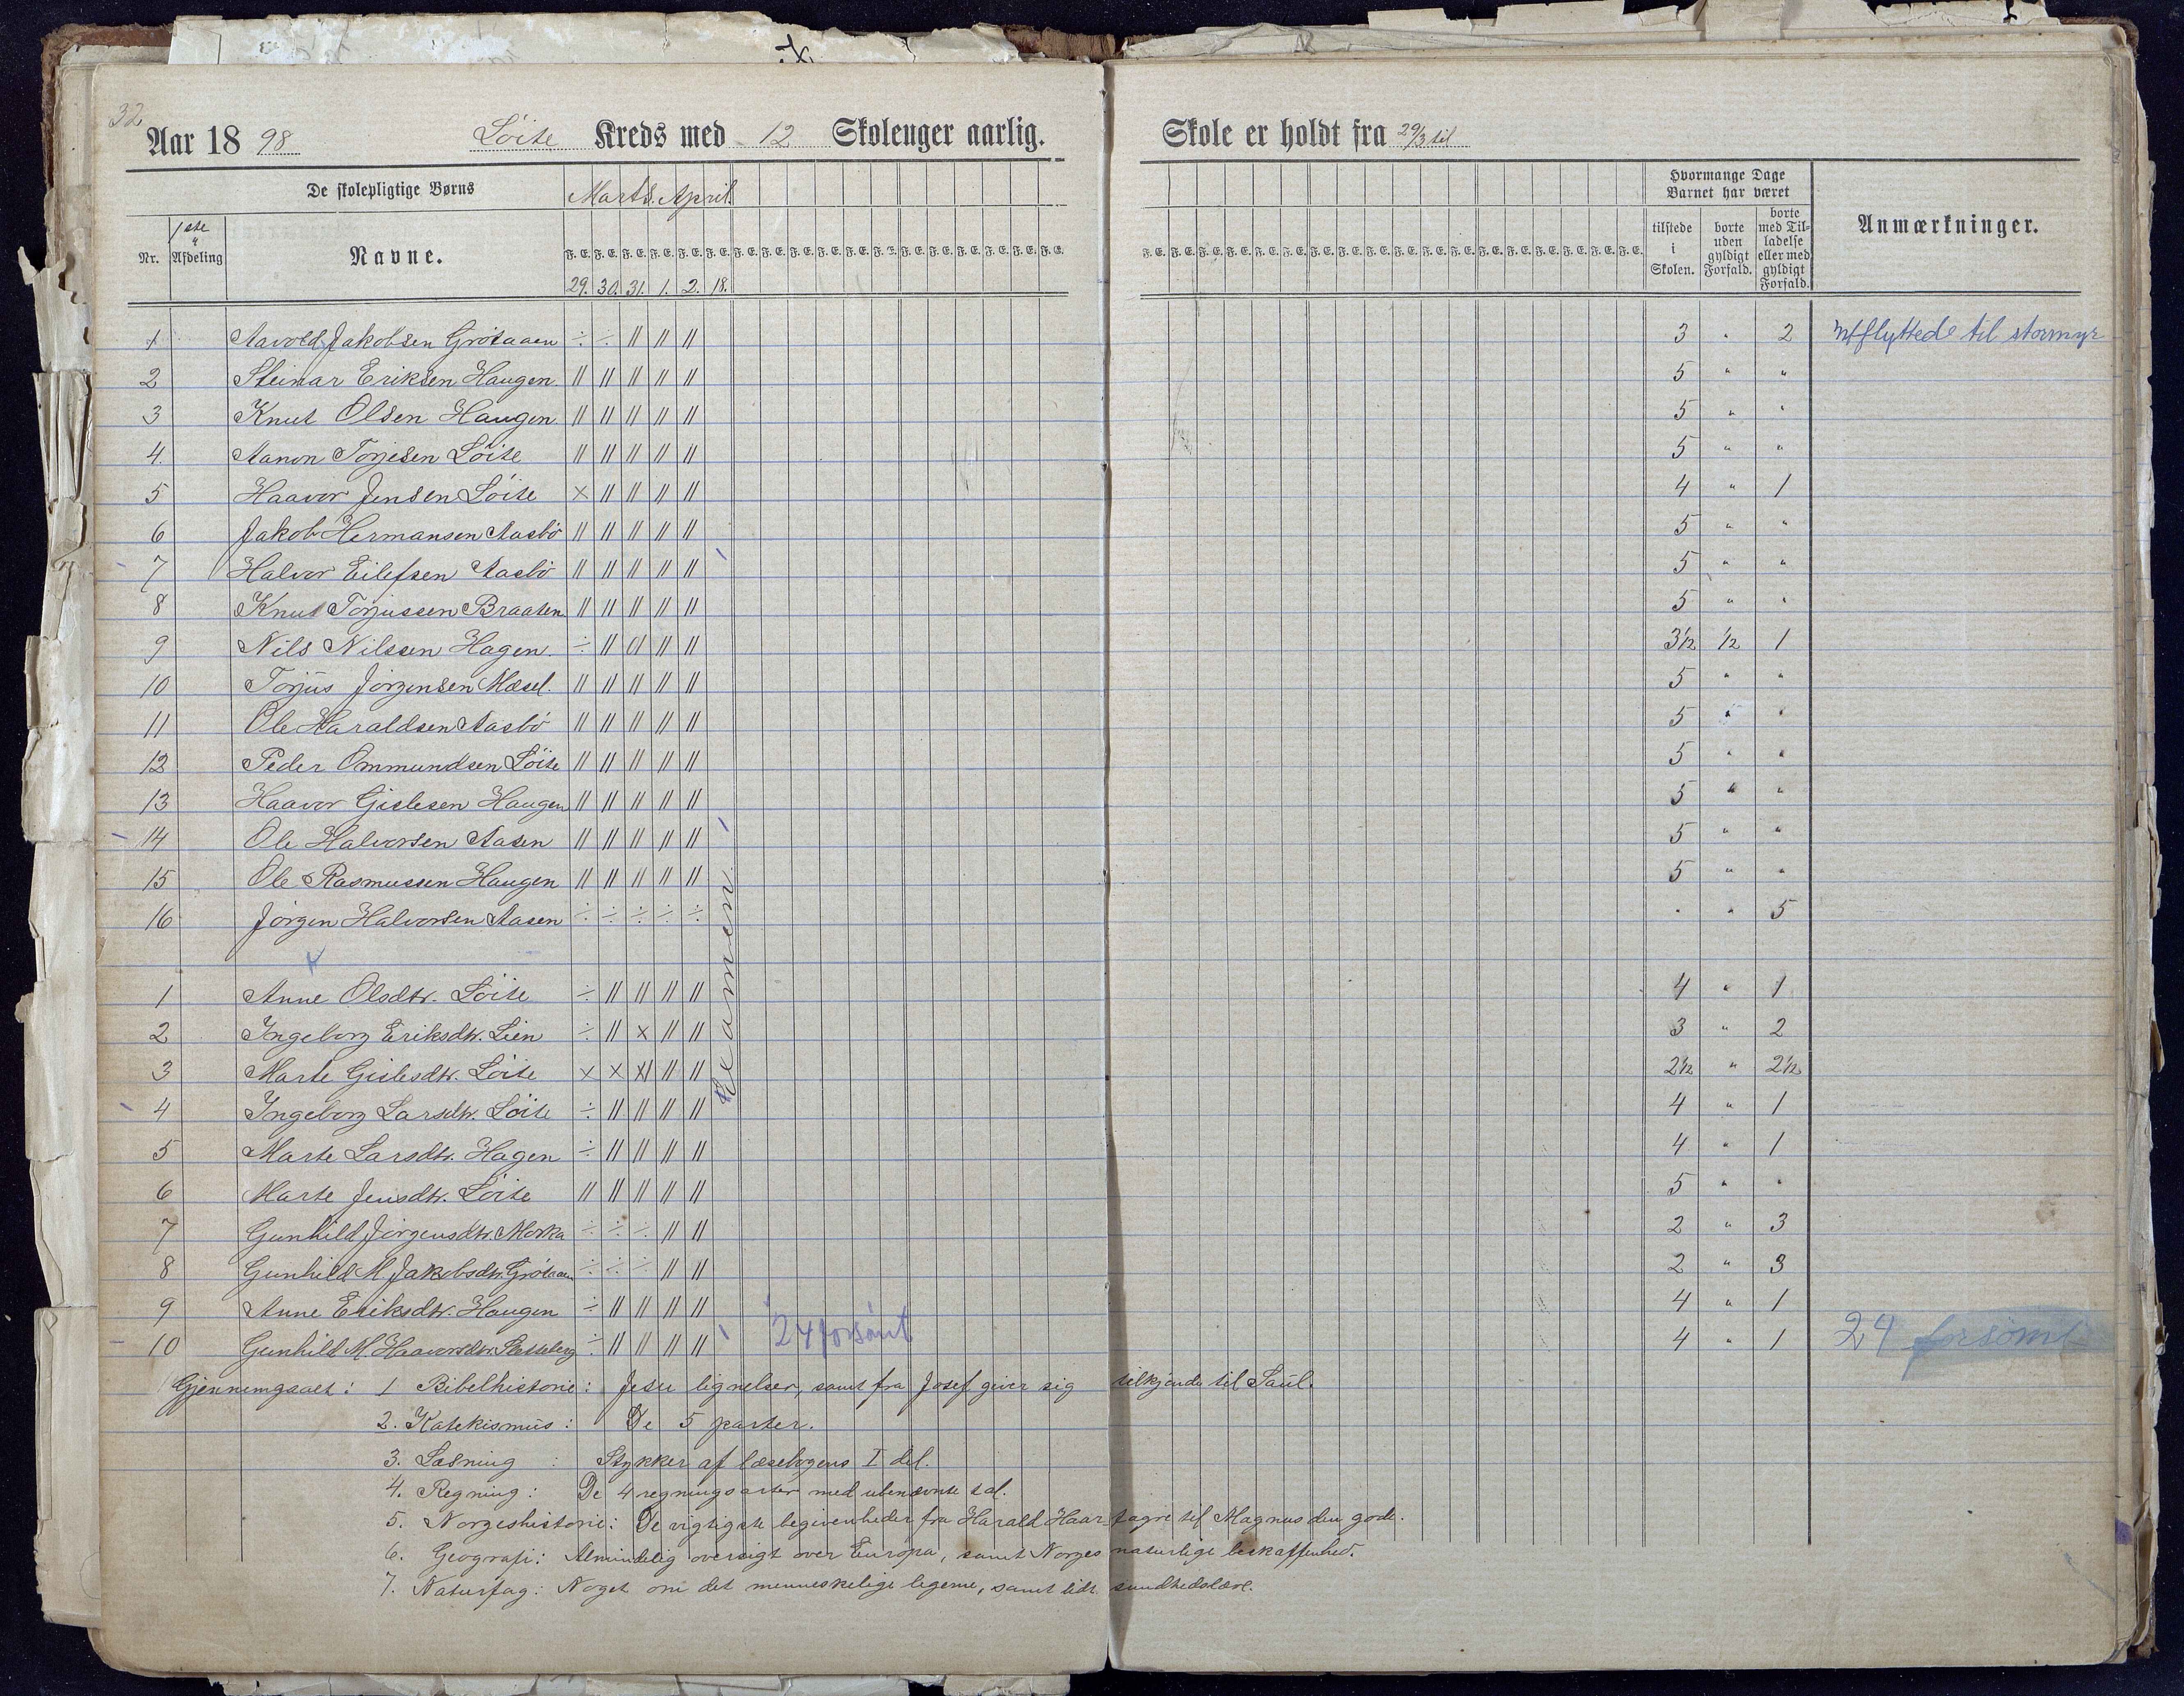 32
Aar 18 98 Löite Kreds med 12 Skoleuger aarlig. Skole er holdt fra 29/3 til
De skolepligtige Børns Marts. April. Hvormange Dage Barnet har været
Nr. 1ste Afdeling Navne. F. E. F. E. F. E. F. E. F. E. F. E. tilstede i Skolen. borte uden gyldigt Forfald. borte med Tilladelse eller med gyldigt Forfald. Anmærkninger.
29. 30. 31. 1. 2. 18.
1 Aavold Jakobsen Grötaaen ÷ ÷ || || || 3 " 2 Utflyttede til stormyr
2 Steinar Eriksen Haugen. || || || || || 5 " "
3 Knut Olsen Haugen. || || || || || 5 " "
4. Aanon Torjesen Löite || || || || || 5 " "
5 Haavor Jensen Löite × || || || || 4 " 1
6 Jakob Hermansen Aasbö || || || || || 5 " "
7 Halvor Eilefsen Aasbö || || || || || 5 " "
8 Knut Torjussen Braaten || || || || || 5 " "
9 Nils Nilssen Hagen. ÷ || 0| || || 3½ ½ 1
10 Torjus Jörgensen Mæsel. || || || || || 5 " "
11 Ole Haraldsen Aasbö || || || || || 5 " "
12 Peder Ommundsen Löite || || || || || 5 " "
13 Haavor Gislesen Haugen || || || || || 5 " "
14 Ole Halvorsen Aasen || || || || || 5 " "
15 Ole Rasmussen Haugen || || || || || 5 " "
16 Jörgen Halvorsen Aasen ÷ ÷ ÷ ÷ ÷ " " 5
Examen
1 Anne Olsdtr. Löite ÷ || || || || 4 " 1
2 Ingeborg Eriksdtr. Lien ÷ || × || || 3 " 2
3 Marte Gislesdtr. Löite × × ×| || || 2½ " 2½
4 Ingeborg Larsdtr. Löite ÷ || || || || 4 " 1
5 Marte Larsdtr. Hagen ÷ || || || || 4 " 1
6 Marte Jensdtr. Löite || || || || || 5 " "
7 Gunhild Jörgensdtr. Morka ÷ ÷ ÷ || || 2 " 3
8 Gunhild M. Jakobsdtr. Grötaaen ÷ ÷ ÷ || || 2 " 3
9 Anne Eriksdtr. Haugen ÷ || || || || 4 " 1
10 Gunhild M. Haavorsdtr. ÷ || || || || 24 forsömt 4 " 1 24 forsömt
Gjennemgaaet: 1 Bibelhistorie: Jesu lignelser, samt fra Josef giver sig tilkjende til Saul.
2. Katekismus: De 5 parter.
3. Læsning : Stykker af læsebogens I del.
4. Regning: De 4 regningsarter med ubenævnte tal.
5. Norgeshistorie: De vigtigste begivenheder fra Harald Haarfagre til Magnus den gode.
6. Geografi: Almindelig oversigt over Europa, samt Norges naturlige beskaffenhed.
7. Naturfag: Noget om det menneskelige legeme, samt lidt sundhedslære.